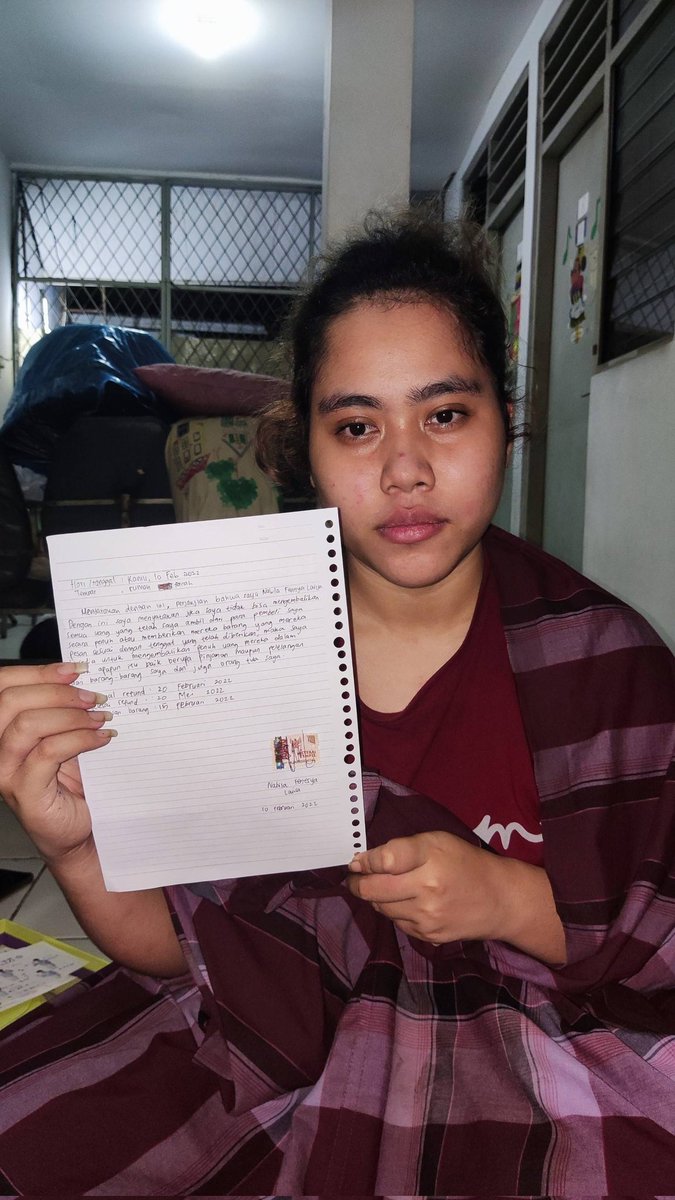 Hari/tanggal : Kamis, 10 Feb 2022
Tempat : rumah
Menyatakan dengan ini, perjanjian bahwa saya Nabila Fernsya Laura
Dengan ini saya menyatakan jika saya tidak bisa mengembalikan
semua uang yang telah saya ambil dari para pembeli saya
secara penuh atau memberikan mereka barang yang mereka
pesan sesuai dengan tenggat yang telah diberikan, maka saya
untuk mengembalikan penuh uang mereka dalam
apapun itu baik berupa pinjaman maupun pelelangan
barang-barang saya dan juga orang tua saya
refund : 20 Februari 2022
refund : 20 Mei 2022
barang : 15 Februari 2022
Nabila Fernsya
Laura
10 Februari 2022